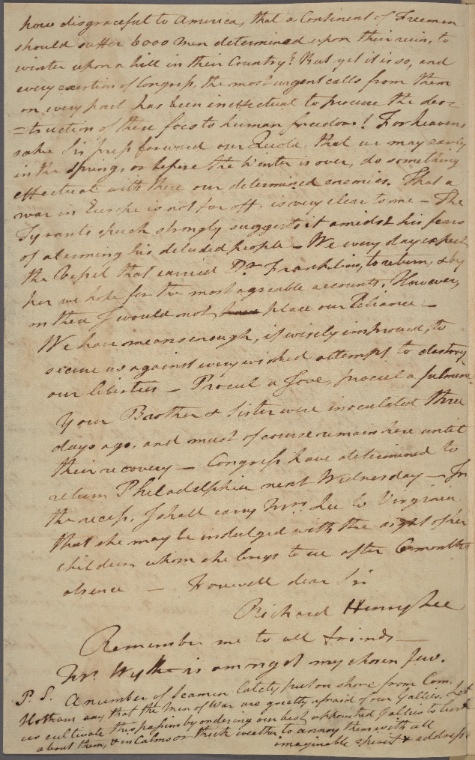 how disgraceful to America, that a Continent of Freemen
should suffer 6000 men determined upon their ruin, to
winter upon a hill in their Country? But yet it is so, and
every exertion of Congress, the most urgent calls from them
on every part has been ineffectual to procure the des-
=truction of these foes to human freedom! For heavens
sake Sir press forward our Quota, that we may early
in the Spring, or before the Winter is over, do something
effectual with these our determined enemies. That a
war in Europe is not far off is very clear to me – The
Tyrants speech strongly suggests it amidst his fears
of alarming his deluded people – We every day expect
the Vessel that carried Dr. Franklin, to return, & by
her we hope for the most agreable accounts. However,
on these I would not place our Reliance –
We have means enough, if wisely improved, to
secure us against every wicked attempt to destroy
our liberties – Procul a Jove, procul a fulmine
Your Brother & Sister were inoculated three
days ago, and must of course remain here until
their recovery – Congress have determined to
return Philadelphia next Wednesday – In
the recess, I shall carry Mrs. Lee to Virginia
that she may be indulged with the sight of her
children whom she longs to see after 6 months
absence – Farewell dear Sir
Richard Henry Lee
Remember me to all friends –
Mr. Wythe is amongst my chosen few.
P. S. A number of Seamen lately put on shore from Com.
Hotham say that the Men of War are greatly afraid of our Gallies. Let
us cultivate this papin by ordering our best appointed Gallies to
about them, & in Calms or thick weather to annoy them with all
imaginable spirit & address